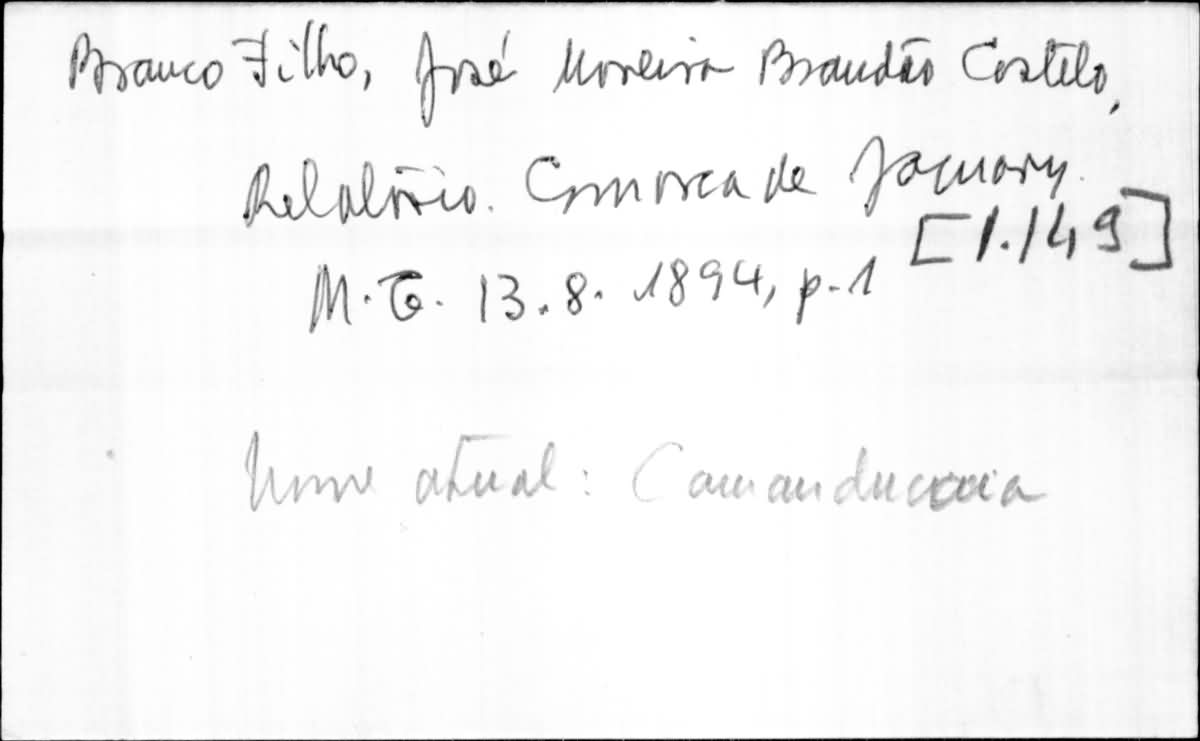 Branco Filho, José Moreira Brandão Castelo,
Relatório. Comarca de Jaguary.
[1.149]
M.G. 13.8.1894, p.1
Nome atual: Camanducaia